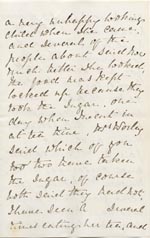 a very unhappy looking
child when she came,
and several of the
people about said how
much better they looked.
the food was kept
locked up because they
took the sugar. one
day when I went in
at tea time, Mrs
said which of you
two
the sugar, of course
both said they had not,
I have seen h several
times eating her tea, and